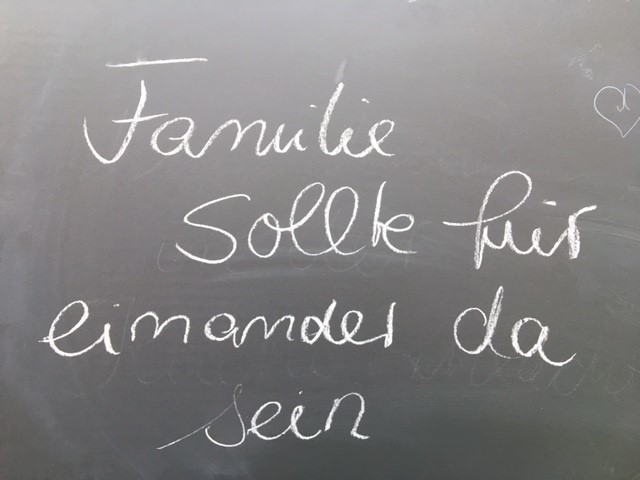 Familie
sollte für
einander da
sein